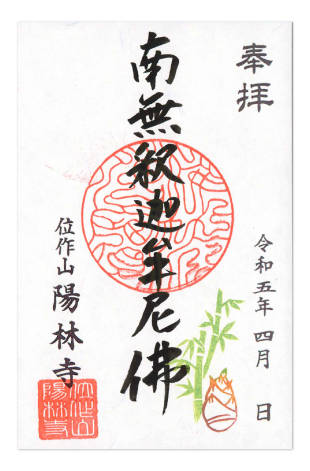 奉拝
南無釈迦牟尼佛
令和五年四月 日
位作山 陽林寺
位作山
陽林寺